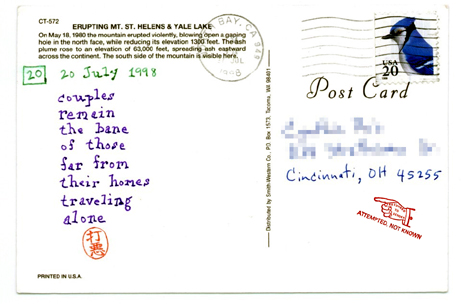 CT-572
ERUPTING MT. ST. HELENS & YALE LAKE
On May 18, 1980 the mountain erupted violently, blowing open a gaping
hole in the north face, while reducing its elevation 1300 feet. The ash
plume rose to an elevation of 63,000 feet, spreading ash eastward
across the continent. The south side of the mountain is visible here.
20 20 July 1998
couples
remain
the bane
of those
far from
their homes
traveling
alone
PRINTED IN U.S.A.
Distributed by Smith-Western Co. P.O. Box 1573, Tacoma, WA 98401
BAY, CA
USA
20
Post Card
Cincinnati, OH 45255
ATTEMPTED, NOT KNOWN